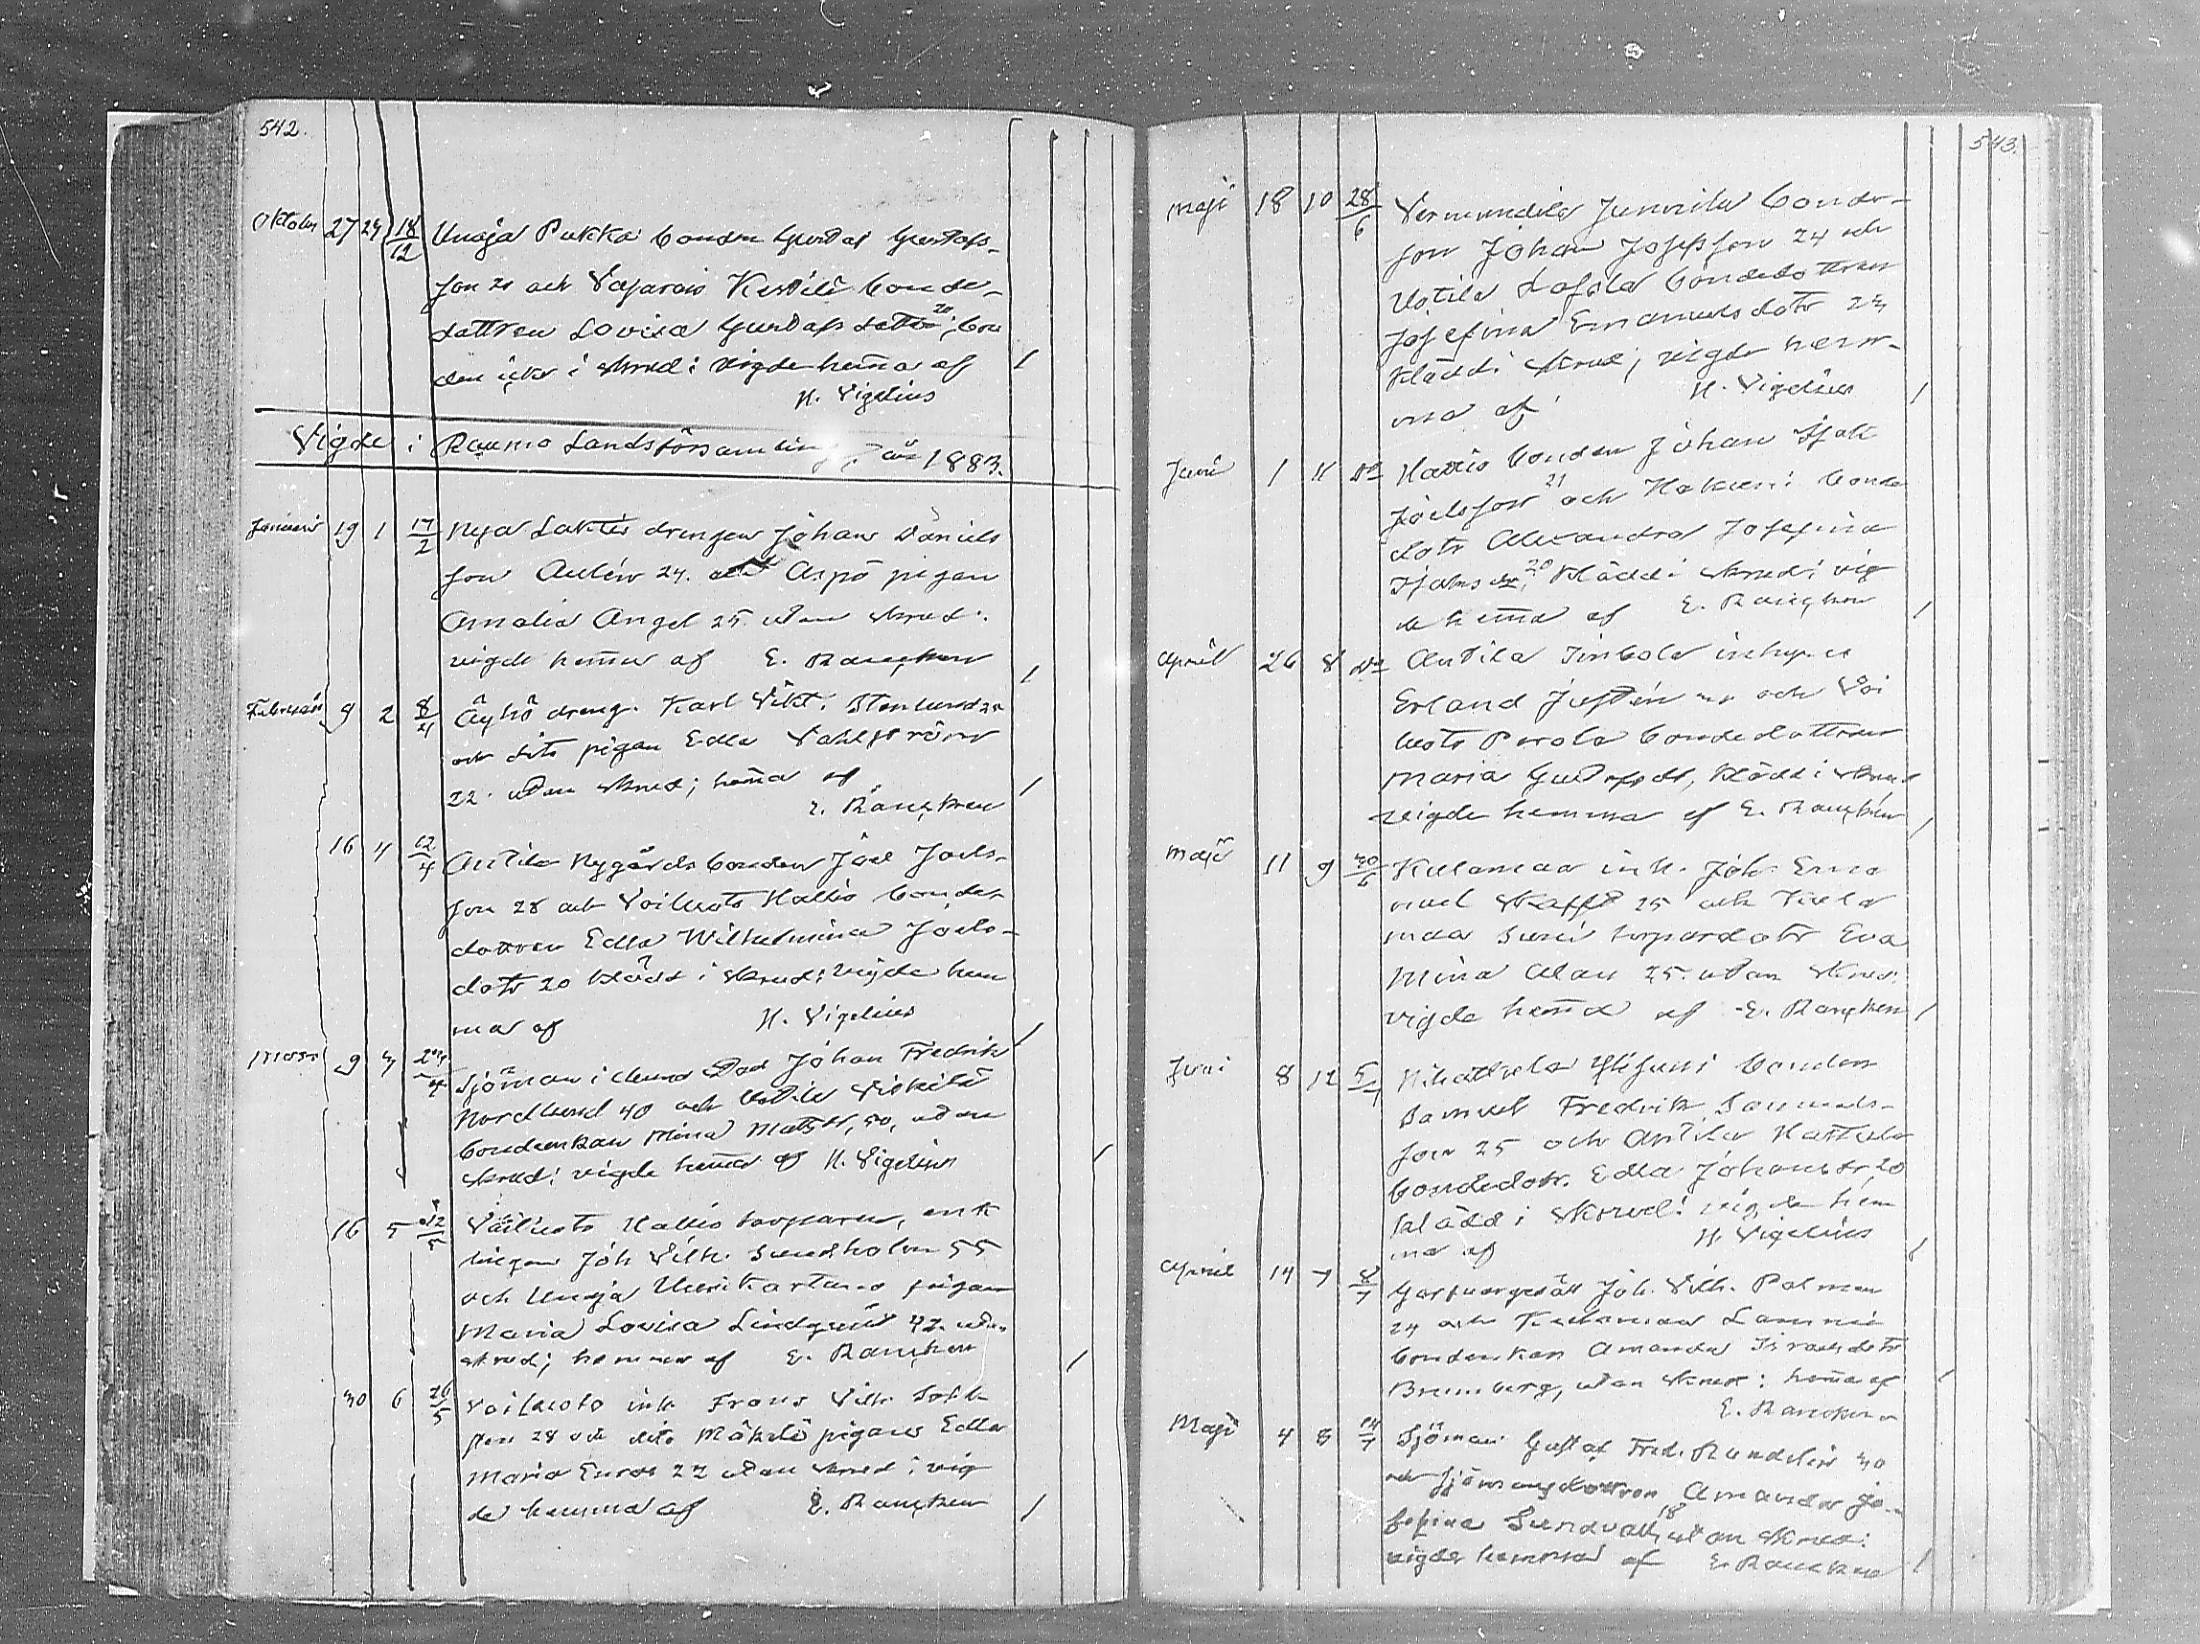 542.
Oktober 27 24 18/12 Unaja Pukka bonden Gustaf Gustafs-
son 21 och Vasarais Kestilä bonde-
dottren Lovisa Gustafsdotter 20,
i skrud: vigde hemma af
H. Vigelius
Vigde i Raumo Landsförsamling år 1883.
Januari 19 1 17/2 Nya Lahtis drengen Johan Daniels
son Autén 24. och Aspö pigan
Amalia Angel 25. utan skrud:
vigde hemma af E. Rancken
Februari 9 2 8/4 Äyhö dreng. Karl Vikt. Stenlund 20
och dito pigan Edla Vahlström
22. utan skrud; hemma af
E. Rancken
16 4 12/4 Antila Nygårds bonden Joel Joels-
son 28 och Voiluoto Hallis bonde-
dottren Edla Wilhelmina Joels-
dotr 20 klädd i skrud: vigde hem
ma af H. Vigelius
Mars 9 3 Sjöman i Johan Fredrik
Nordlund 40 och
bondeenkan Mina Matsdr, 50, utan
skrud: vigde hemma af H. Vigelius
16 5 Voiluoto Hallis torparen, enk
lingen Joh Vilh. Sundholm 55
och Unaja Uusikartano pigan
Maria Lovisa Lindqvist 42. utan
skrud; hemma af E. Rancken
30 6 26/5 Voiluoto inh Frans Vilh.
28 och dito Mäkelä pigan Edla
Maria Euros 22 utan skrud: vig
de hemma af E. Rancken
543.
Maji 18 10 28/6 Vermundila Junnila bonde-
son Johan Josefsson 24 och
bondedottren
Josefina Emanuelsdotr 23
klädd i skrud; vigde hem-
ma af H. Vigelius
Juni 1 11 Do bonden Johan
Joelsson 21 och bonde
dotr Alexandra Josefina
20, klädd i skrud; vig
de hemma af E. Rancken
April 26 8 Do Antila inhyses
Erland Justén och Voi
luoto Perola bondedottren
Maria Gustafsdt, klädd i skrud
vigde hemma af E. Rancken
Maji 11 9 30/6 Kulamaa inh. Joh Ema
nuel Skafft 25 och Kula
maa torparedotr Eva
Mina Alan 25. utan skrud:
vigde hemma af E. Rancken
Juni 8 12 5/7 bonden
Samuel Fredrik Samuels-
son 25 och Antila Hattula
bondedotr. Edla Johansdr 20
klädd i skrud: vigde hem
ma af H. Vigelius
April 14 7 8/7 Joh. Vilh. Polman
24 och Kulamaa Lammi
bondenkan Amanda Israelsdotr
Brunberg, utan skrud: hemma af
E. Rancken
Maji 4 8 Sjöman Gustaf Fred. Rundelin 30
och sjömansdottren Amanda Jo-
sefina Sundvall 18, utan skrud:
vigde hemma af E. Rancken